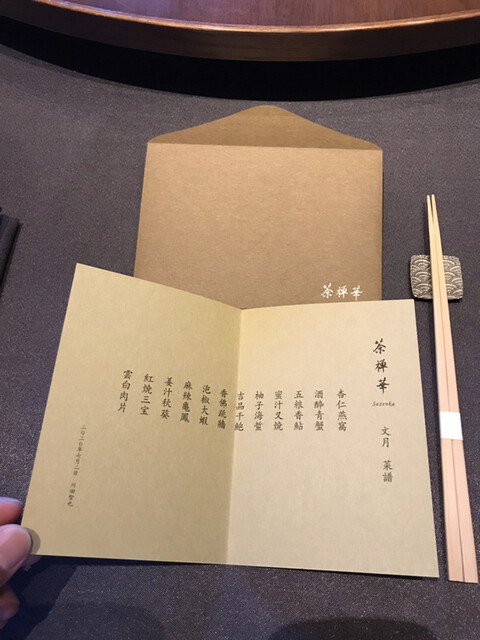 茶禅華
茶禅華
Sazenka
文月 菜譜
杏仁燕窩
酒醉青蟹
五粮香鮎
蜜汁叉焼
柚子海蜇
吉品干鮑
香佛跳牆
泡椒大蝦
麻辣亀鳳
姜汁秋葵
紅焼三宝
雲白肉片
二〇二〇年七月二日 川田智也